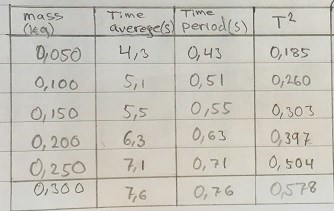 mass (kg) Time averege(s) Time period(s) T²
0,050 4,3 0,43 0,185
0,100 5,1 0,51 0,260
0,150 5,5 0,55 0,303
0,200 6,3 0,63 0,397
0,250 7,1 0,71 0,504
0,300 7,6 0,76 0,578